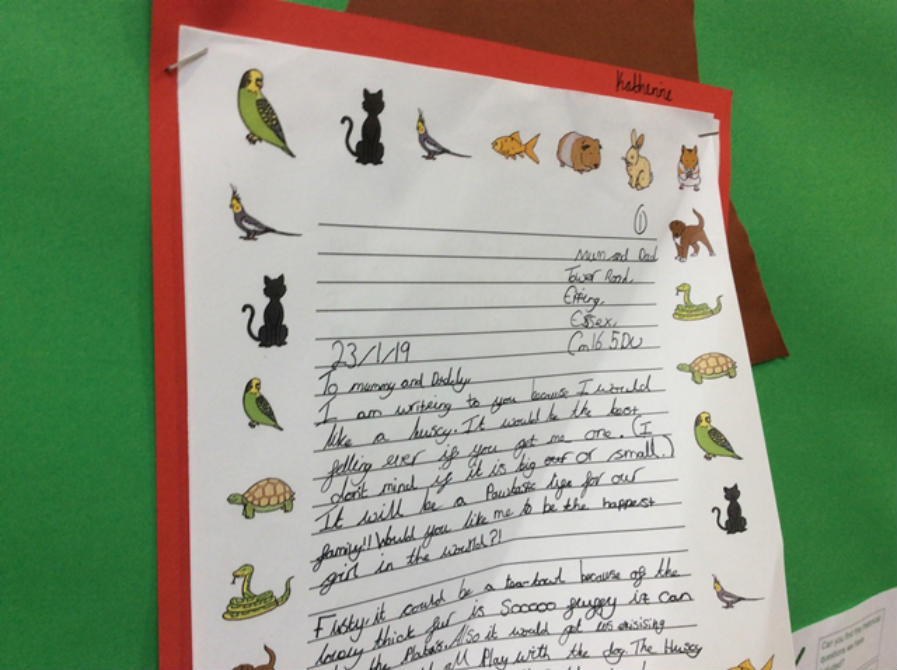 Katherine
1
Mum and Dad
Tower Road,
Epping,
Essex,
Cm16 5DU
23/1/19
To mummy and Daddy,
I am writeing to you because I would
like a huscy. It would be the best
felling ever if you get me one. (I
don't mind if it is big or small.)
It will be a Pawtastic for our
family!! Would you like me to be the happest
girl in the world?!
Fisty it could be a because of the
lovely thick fur is Sooooo fluggy it can
the Plates. Also it would get us exisising
Play with the dog. The Huscy
Can you find the